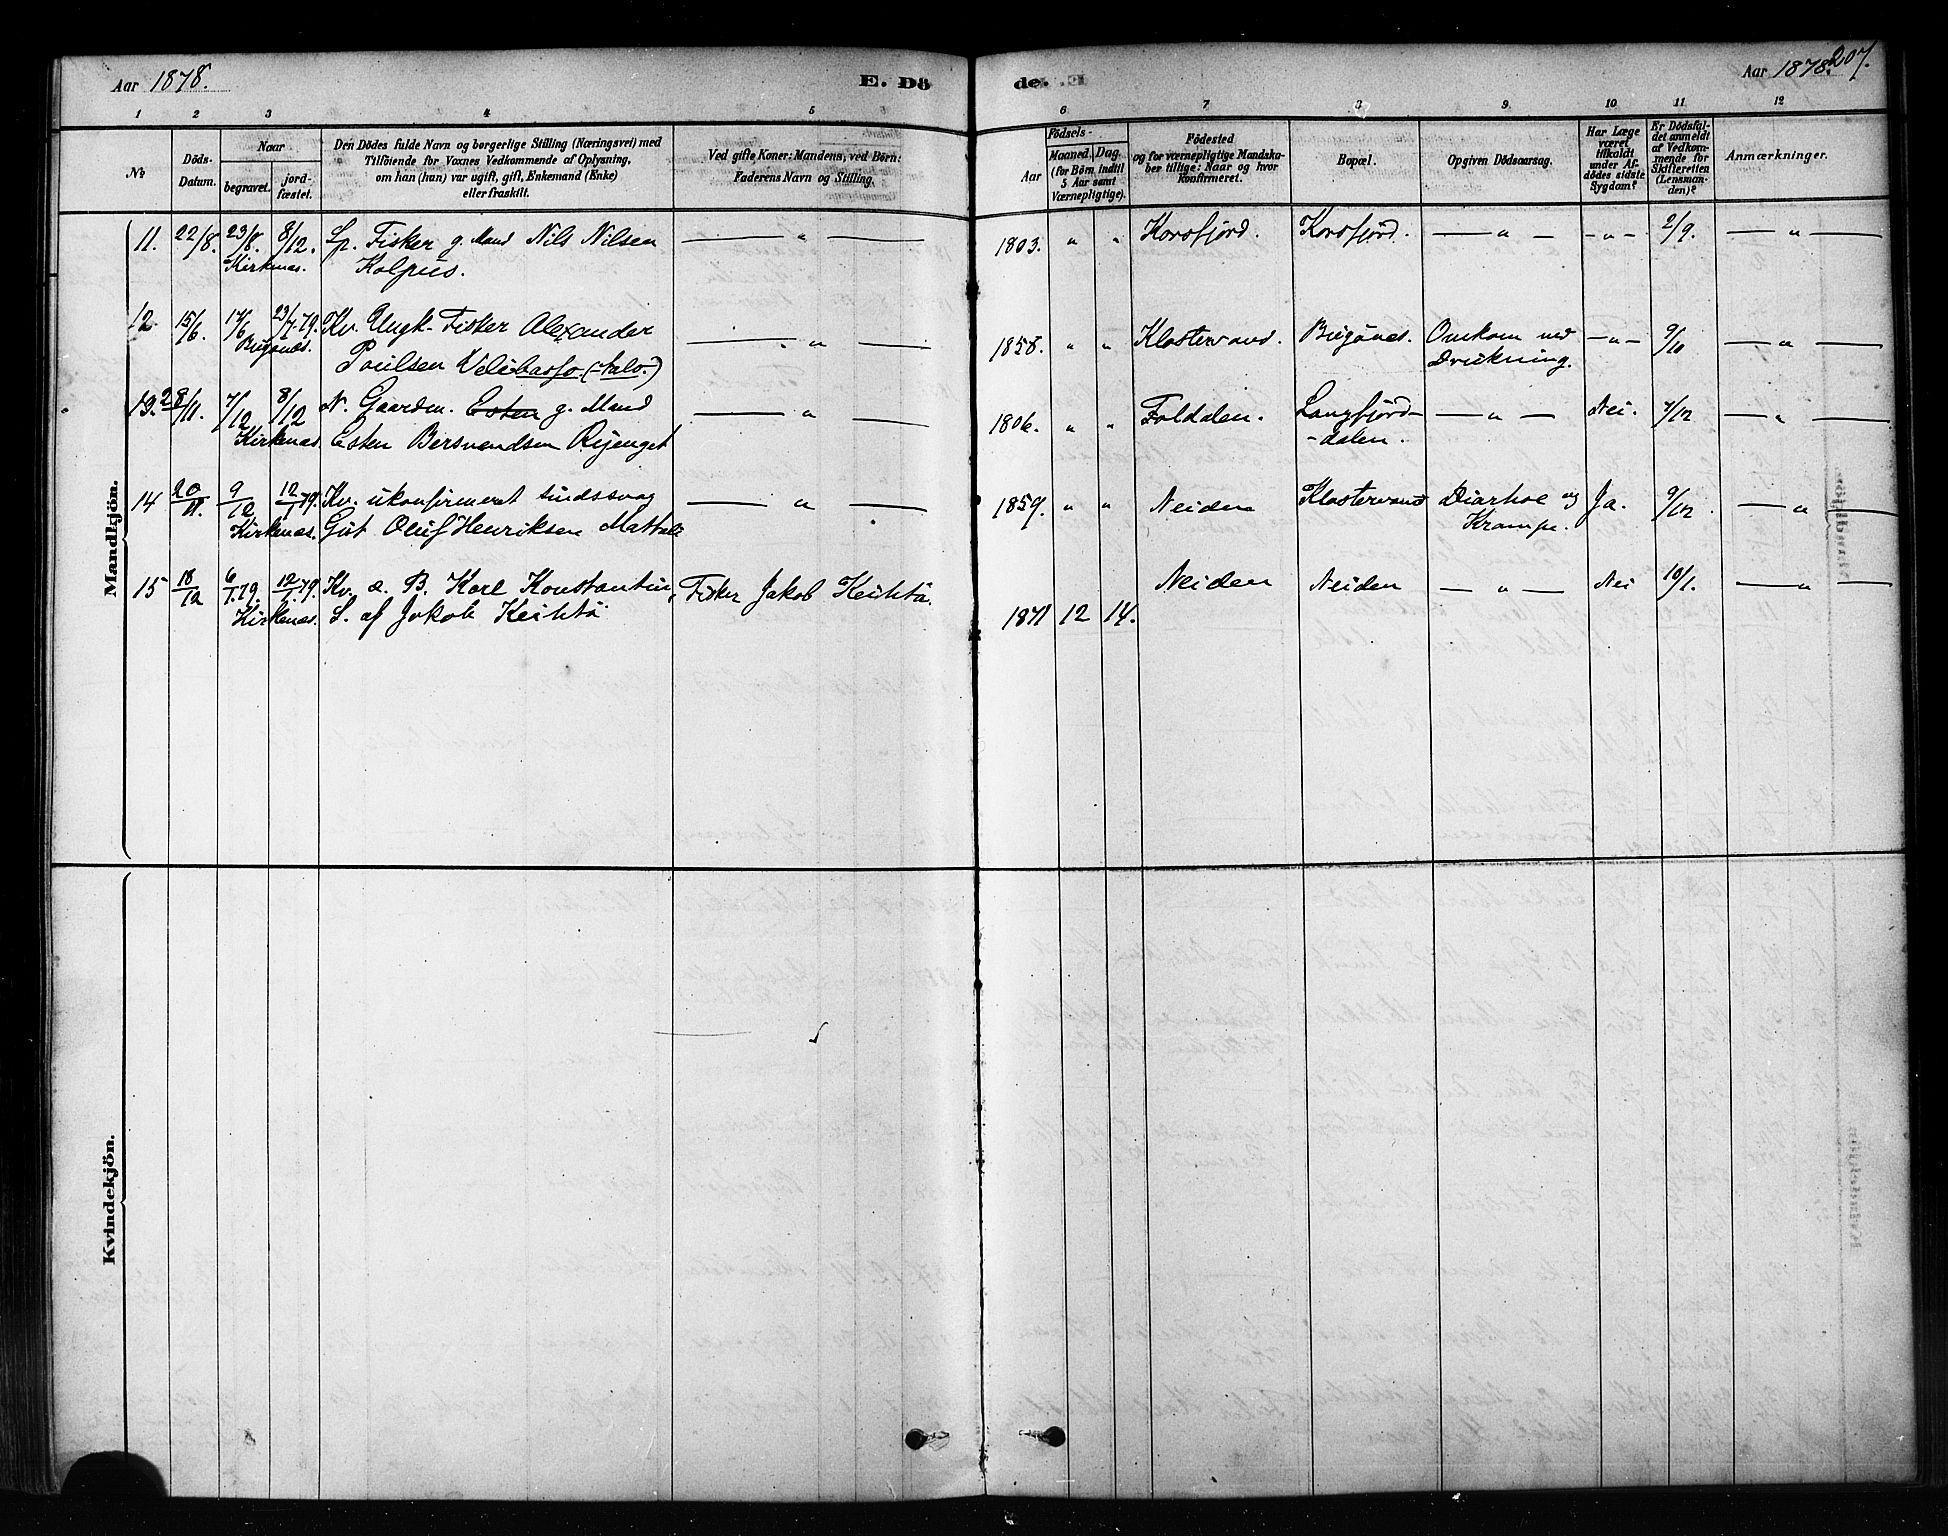 Aar 1878.
E. Dö
de.
Aar 1878.
207.
1 2 3 4 5 6 7 8 9 10 11 12
No
Döds-Datum.
Naar
begravet.
jord-fæstet.
Den Dödes fulde Navn og borgerlige Stilling (Næringsvei) med
Tilföiende for Voxnes Vedkommende af Oplysning,
om han (hun) var ugift, gift, Enkemand (Enke)
eller fraskilt.
Ved gifte Koner: Mandens, ved Börn:
Faderens Navn og Stilling.
Födsels-
Aar
Maaned. Dag.
(for Börn indtil
5 Aar samt
Værnepligtige).
Födested
og for værnepligtige Mandska-
ber tillige: Naar og hvor
konfirmeret.
Bopæl.
Opgiven Dödsaarsag.
Har Læge
været
tilkaldt
under Af-
dödes sidste
Sygdom?
Er Dödsfal-
det anmeldt
af Vedkom-
mende for
Skifteretten
(Lensman-
den)?
Anmærkninger.
Mandkjön.
11. 22/8. 23/8. 8/12. Lp. Fisker g. Mand Nils Nilsen — „ — 1803. „ „ Korsfjord. Korsfjord. — „ — — „ — 2/9. — „ —
Kirkenæs. Kolpus.
12. 15/6. 17/6 23/7.79. Kv. Ungk. Fisker Alexander — „ — 1858. „ „ Klostervand. Bugönes. Omkom ved — „ — 9/10 — „ —
Bugönæs. Poulsen Velibasso (-talo-) Drukning.
13. 28/11. 7/12 8/12 N. Gaardm. Esten g. Mand — „ — 1806. „ „ Foldalen. Langfjord- — „ — Nei. 7/12 — „ —
Kirkenæs. Esten Bersvendsen Ryenget -dalen.
14 20/11. 9/12 12/1 79. Kv. ukonfirmeret sindssvag — „ — 1859. „ „ Neiden Klostervand Diarhoe og Ja. 9/12 — „ —
Kirkenæs. Gut Oluf Henriksen Mattala Krampe.
15 18/12 6/1.79. 12/1.79. Kv. æ. B. Karl Konstantin, Fisker Jakob Keihtä. Neiden Neiden — „ — Nei 10/1. — „ —
Kirkenæs. S. af Jakob Keihtä 1871 12 14.
Kvindekjön.